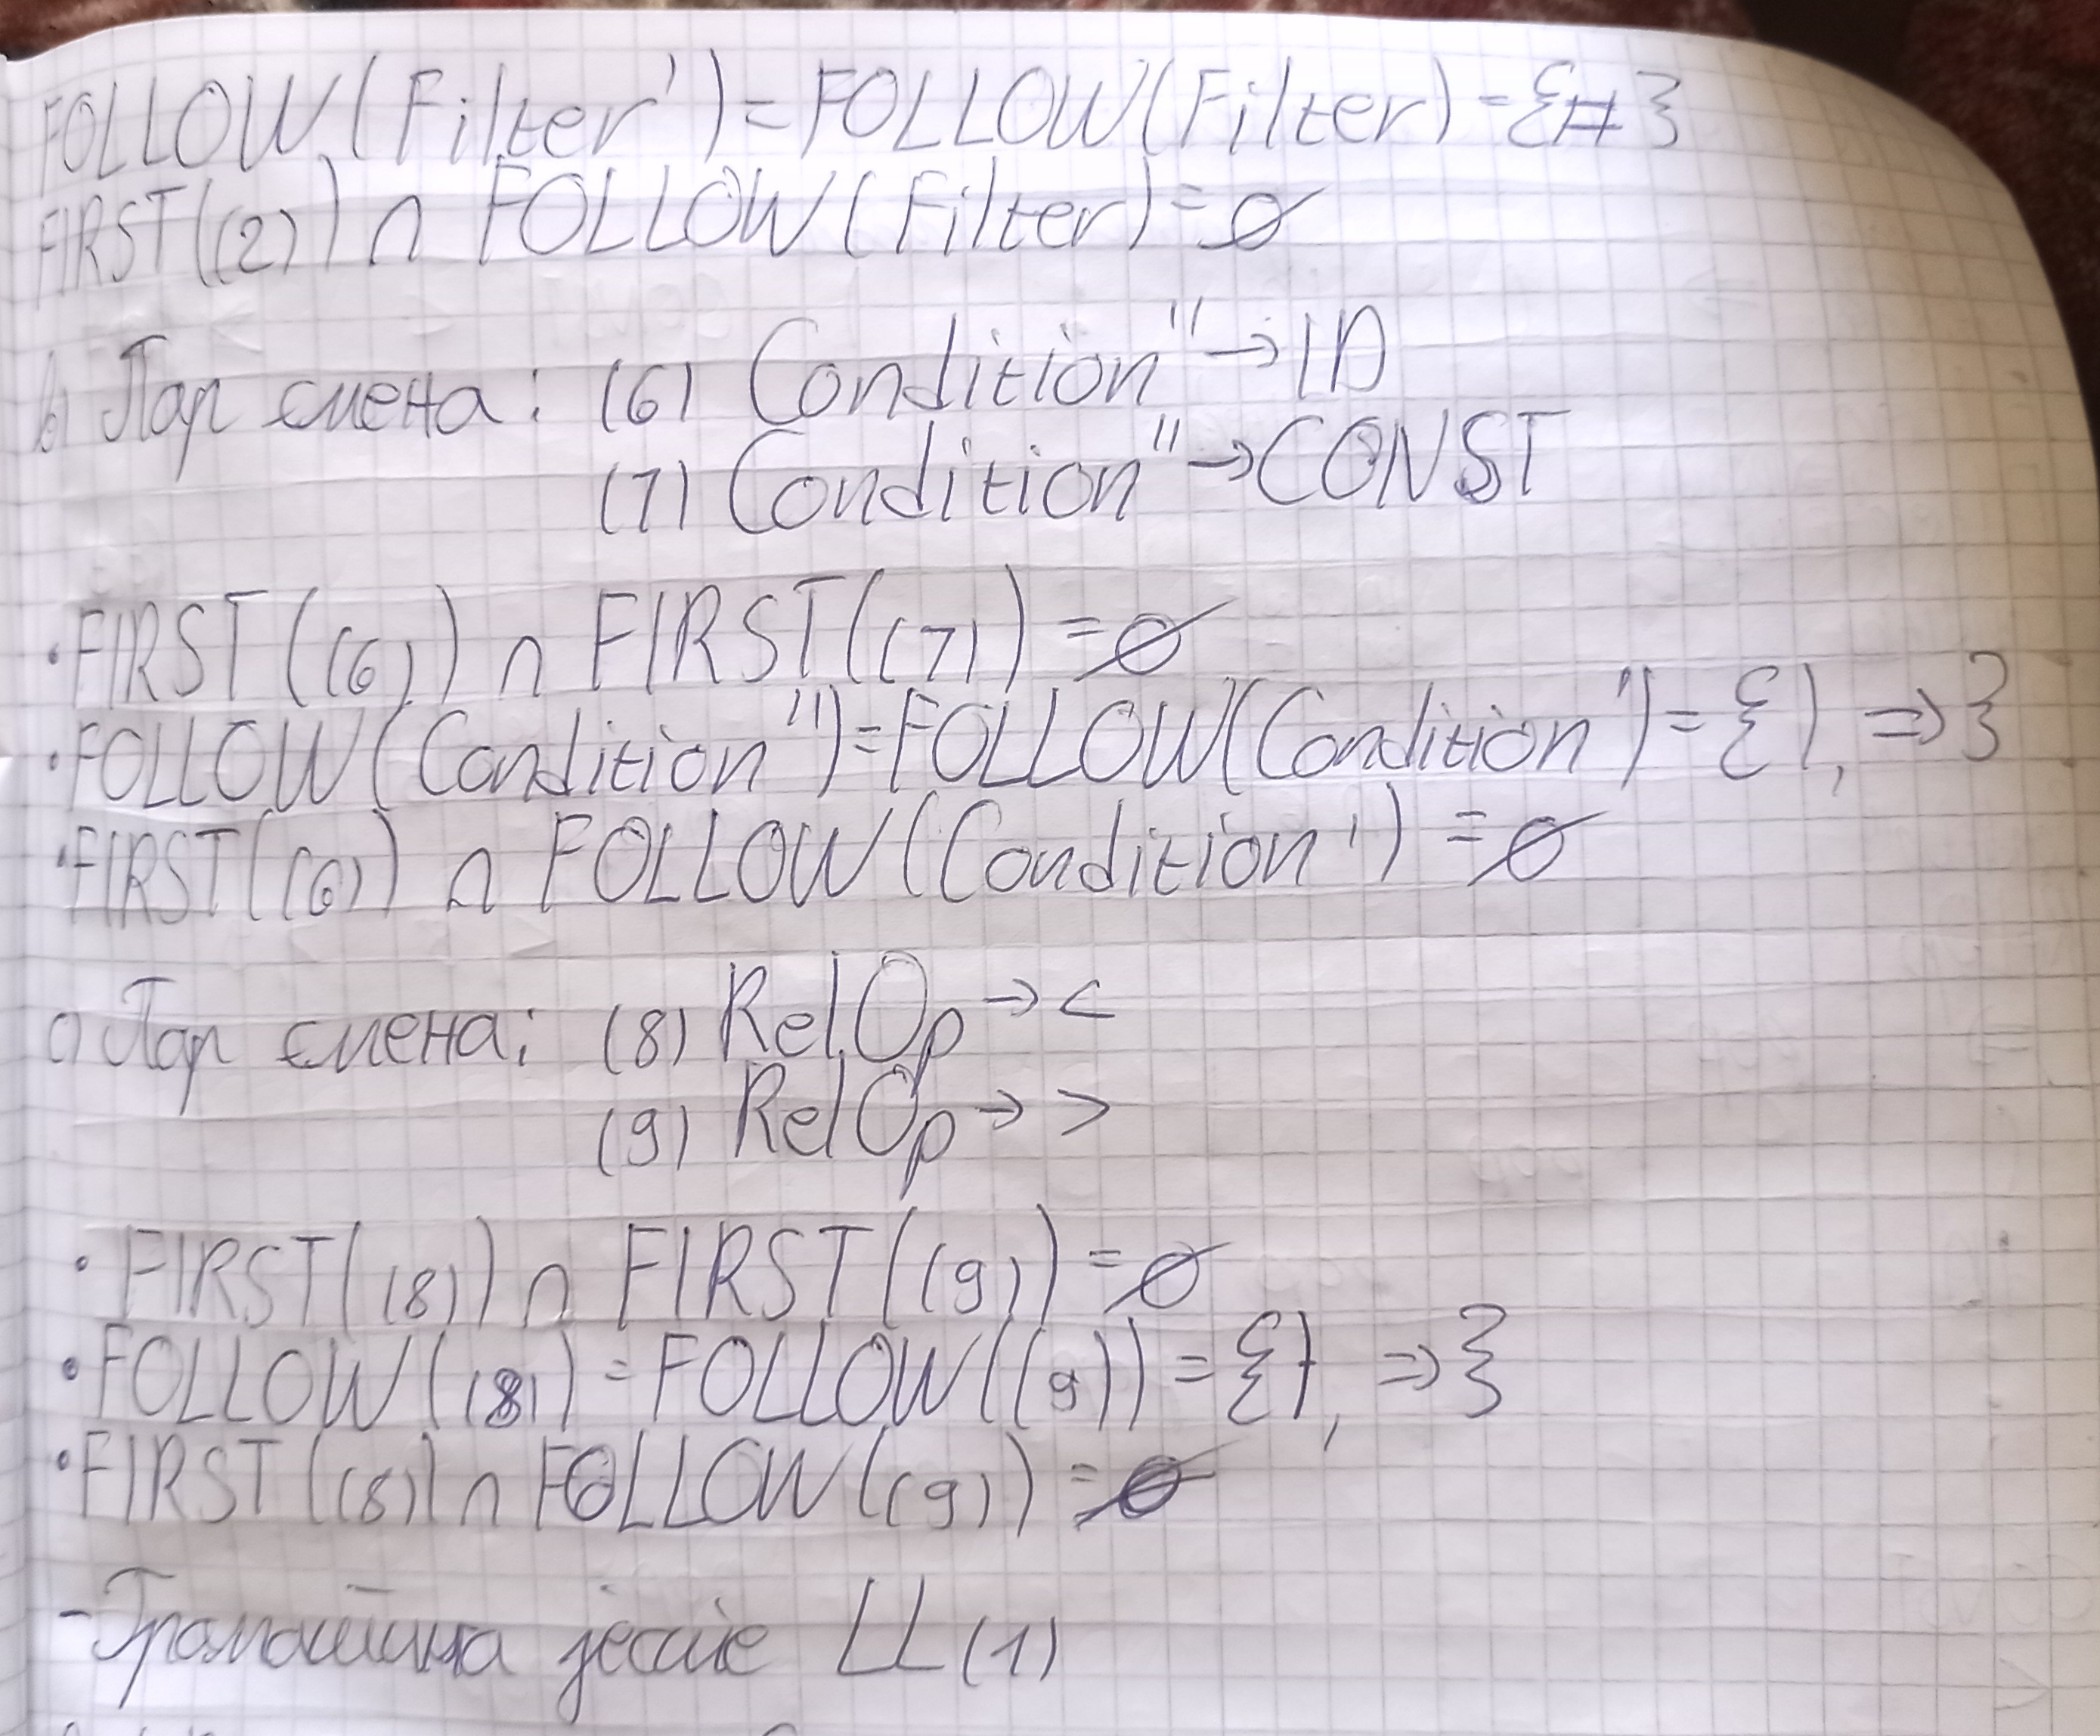 FOLLOW(Filter') = FOLLOW(Filter) = {#}
FIRST((2)) ∩ FOLLOW(Filter) = ∅
b) Пар смена: (6) Condition'' → ID
(7) Condition'' → CONST
• FIRST((6)) ∩ FIRST((7)) = ∅
• FOLLOW(Condition'') = FOLLOW(Condition') = {), =>}
• FIRST((6)) ∩ FOLLOW(Condition') = ∅
c) Пар смена: (8) RelOp → <
(9) RelOp → >
• FIRST((8)) ∩ FIRST((9)) = ∅
• FOLLOW((8)) = FOLLOW((9)) = {), =>}
• FIRST((8)) ∩ FOLLOW((9)) = ∅
- Граматика јесте LL(1)